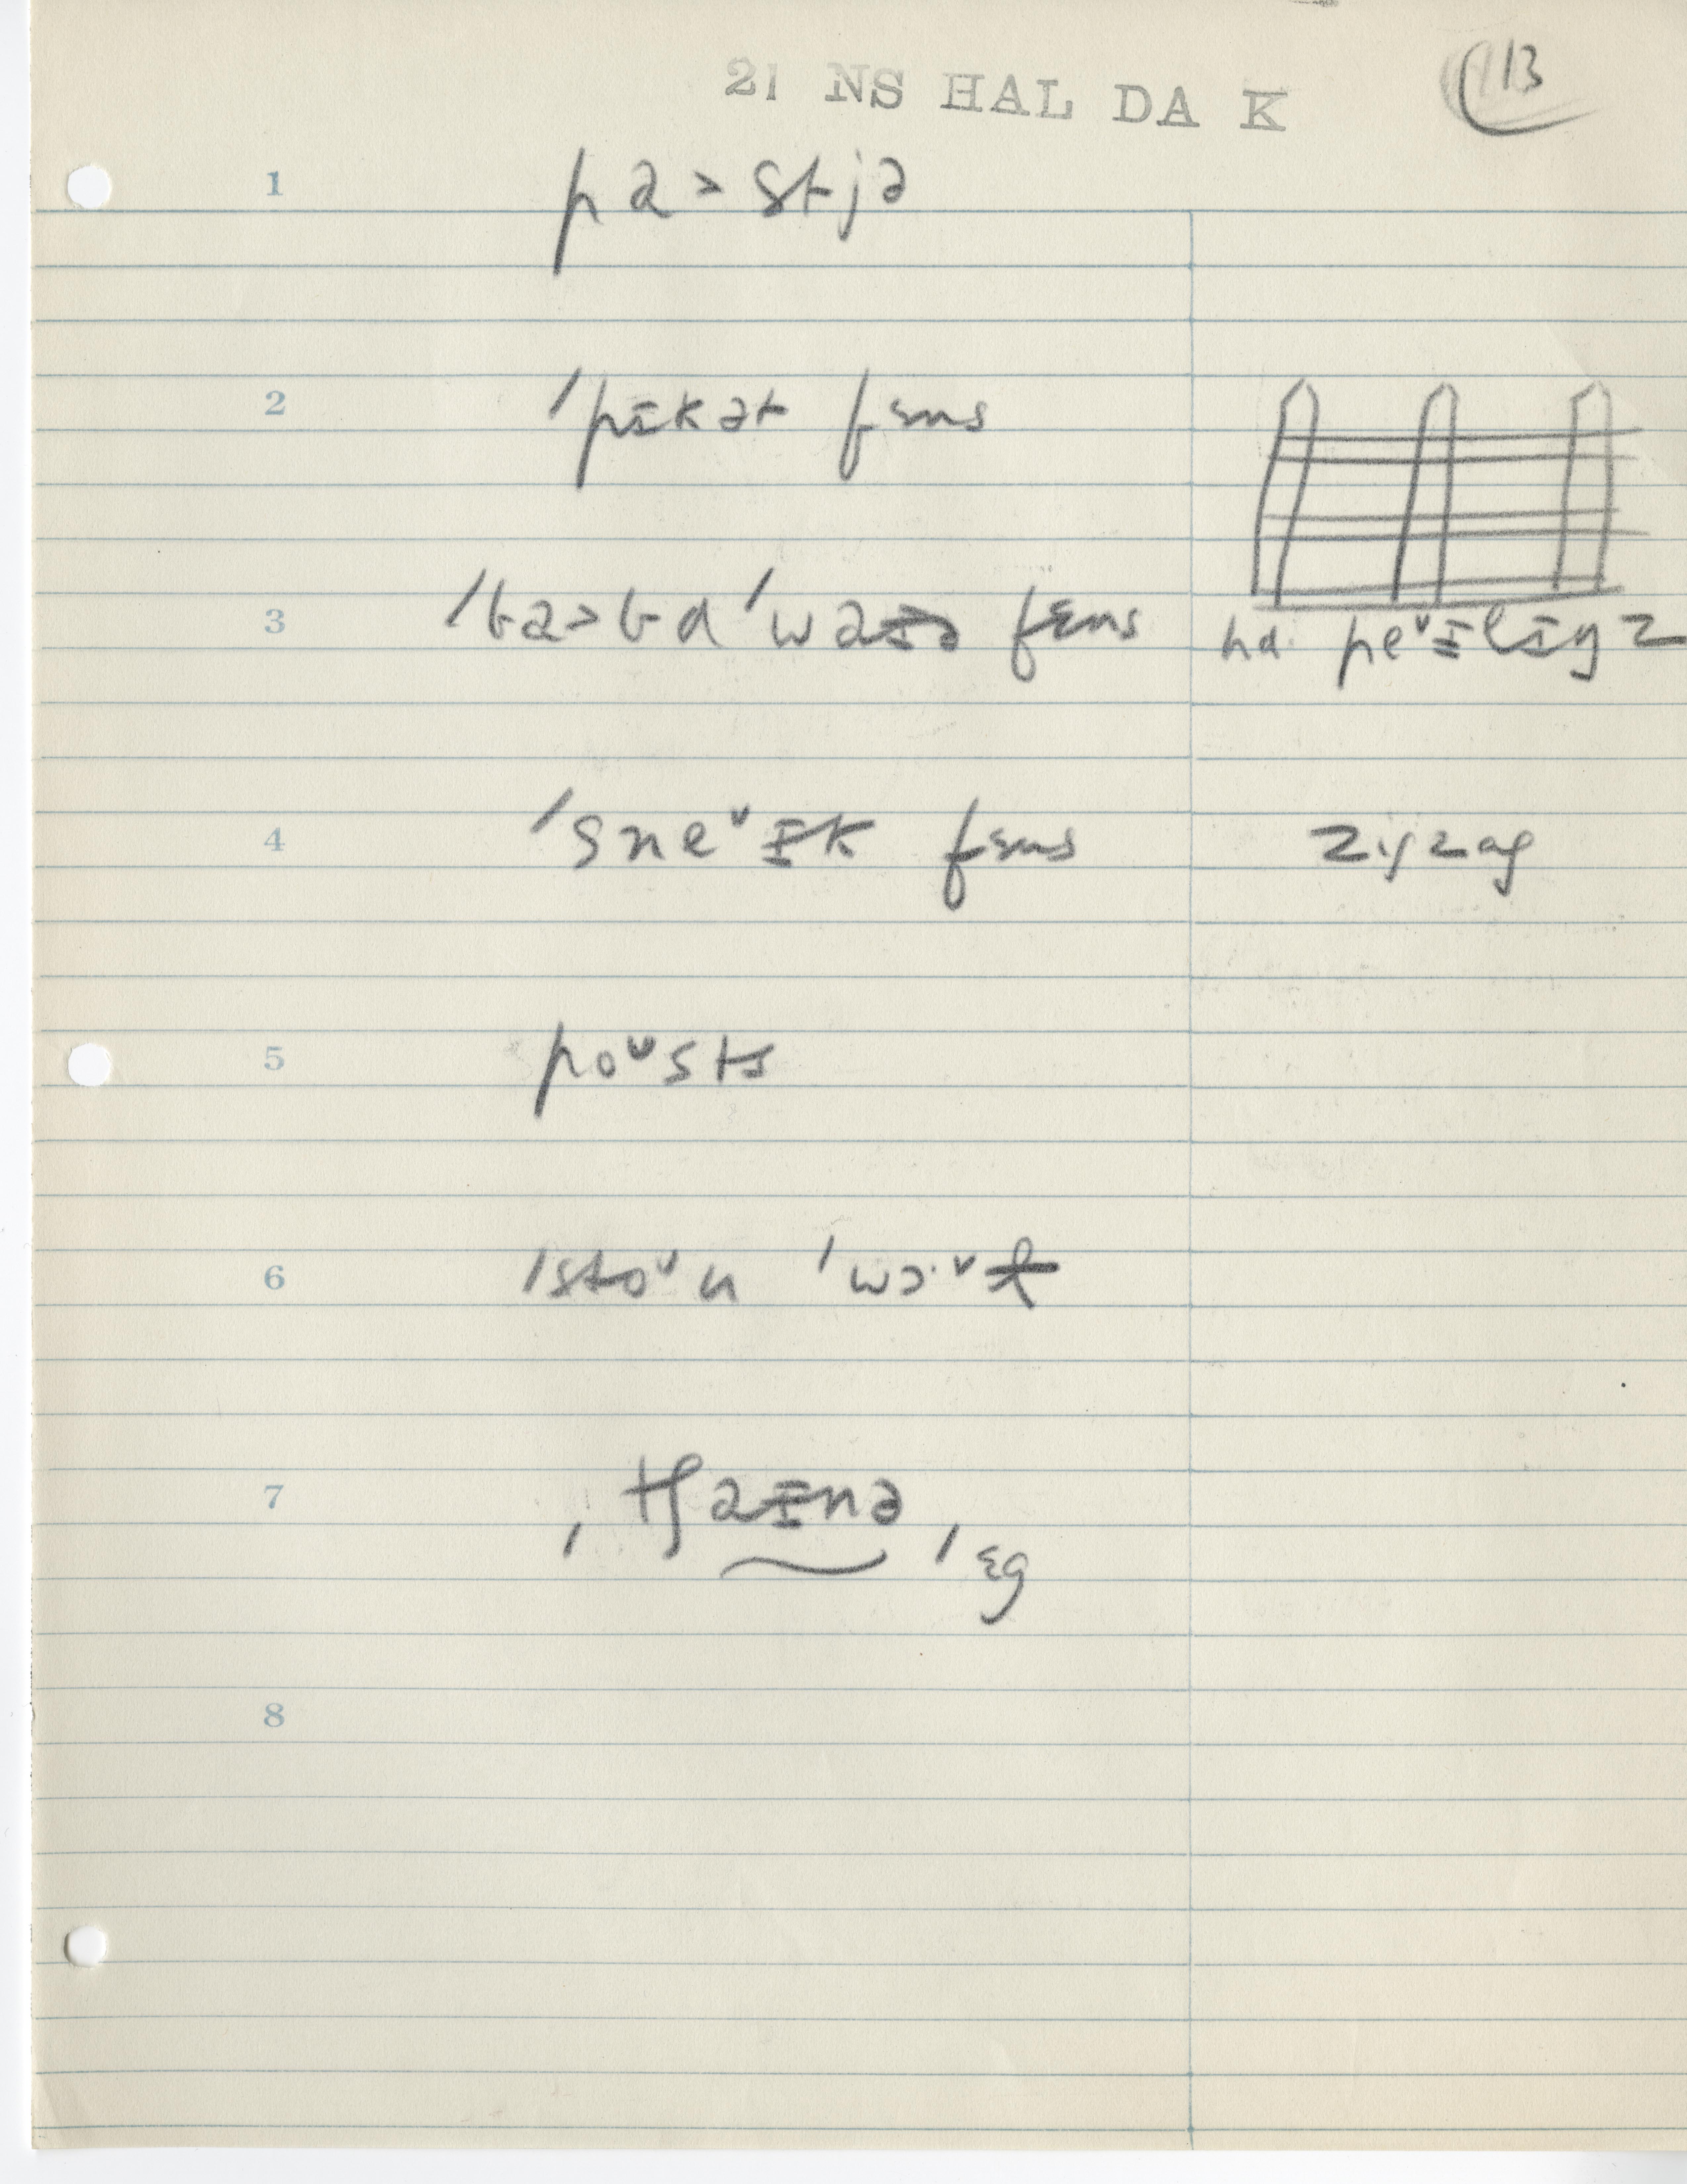 21 NS HAL DA K
13
1 pa>stjə
2 'pɪkət fɛns
3 'ba>bd 'waɪə fɛns
na. peᵛɪlɪŋz
4 'sneᵛɪk fɛns zigzag
5 poᵘsts
6 'stoᵘn 'wɔ·ᵛɫ
7 ˌtʃaɪnə ˈɛg
8